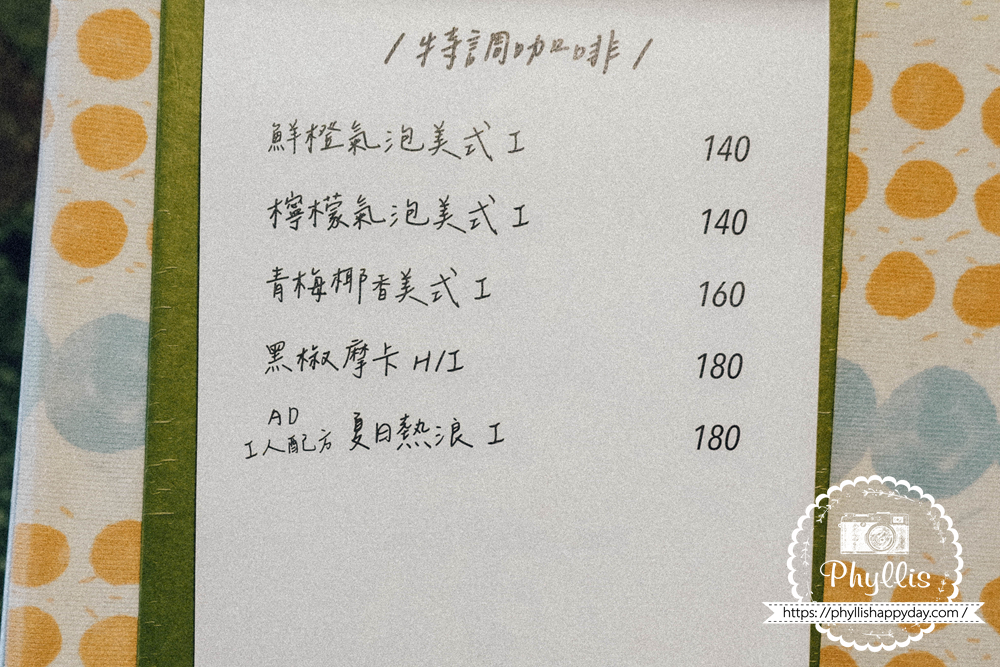 / 特調咖啡 /
鮮橙氣泡美式 I 140
檸檬氣泡美式 I 140
青梅椰香美式 I 160
黑椒摩卡 H/I 180
AD
工人配方 夏日熱浪 I 180
Phyllis
https://phyllishappyday.com/